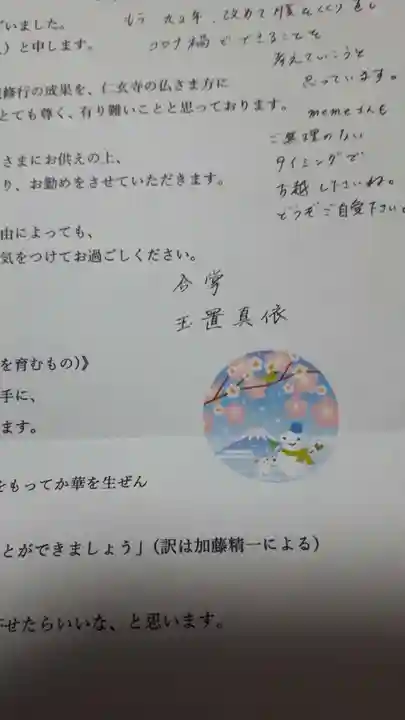 いました。
)と申します。
修行の成果を、仁玄寺の仏さま方に
とても尊く、有り難いことと思っております。
さまにお供えの上、
り、お勤めをさせていただきます。
由によっても、
気をつけてお過ごしください。
もう 年、改めて 腹をくくり直し
コロナ禍でできることを
考えていこうと
思っています。
memeさんも
ご無理のない
タイミングで
お越し下さいね。
どうぞご自愛下さい。
合掌
玉置真依
を育むもの)》
手に、
ます。
をもってか華を生ぜん
とができましょう」(訳は加藤精一による)
せたらいいな、と思います。